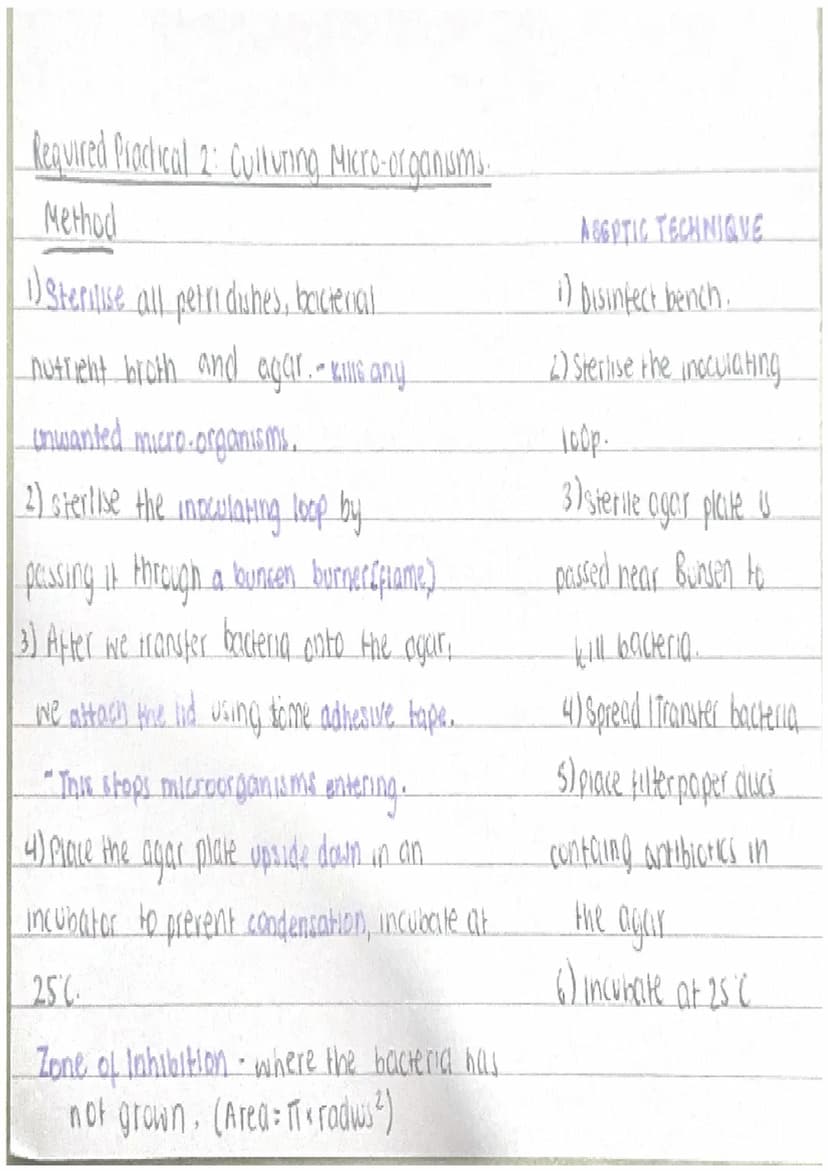 Required Practical 2: Culturing Micro-organisms.
Method
1) Sterilise all petri dishes, bacterial
nutrient broth and agar. - kills any
unwanted micro-organisms.
2) sterlise the inoculating loop by
passing it through a bunsen burner (flame)
3) After we transfer bacteria onto the agar,
we attach the lid using some adhesive tape.
- This stops microorganisms entering.
4) Place the agar plate upside down in an
incubator to prevent condensation, incubate at
25°C.
Zone of Inhibition - where the bacteria has
not grown. (Area = π × radius²)
ASEPTIC TECHNIQUE
1) Disinfect bench.
2) Sterlise the inoculating
loop.
3) sterile agar plate is
passed near Bunsen to
kill bacteria.
4) Spread / Transfer bacteria
5) place filter paper discs
containg antibiotics in
the agar
6) incubate at 25°C